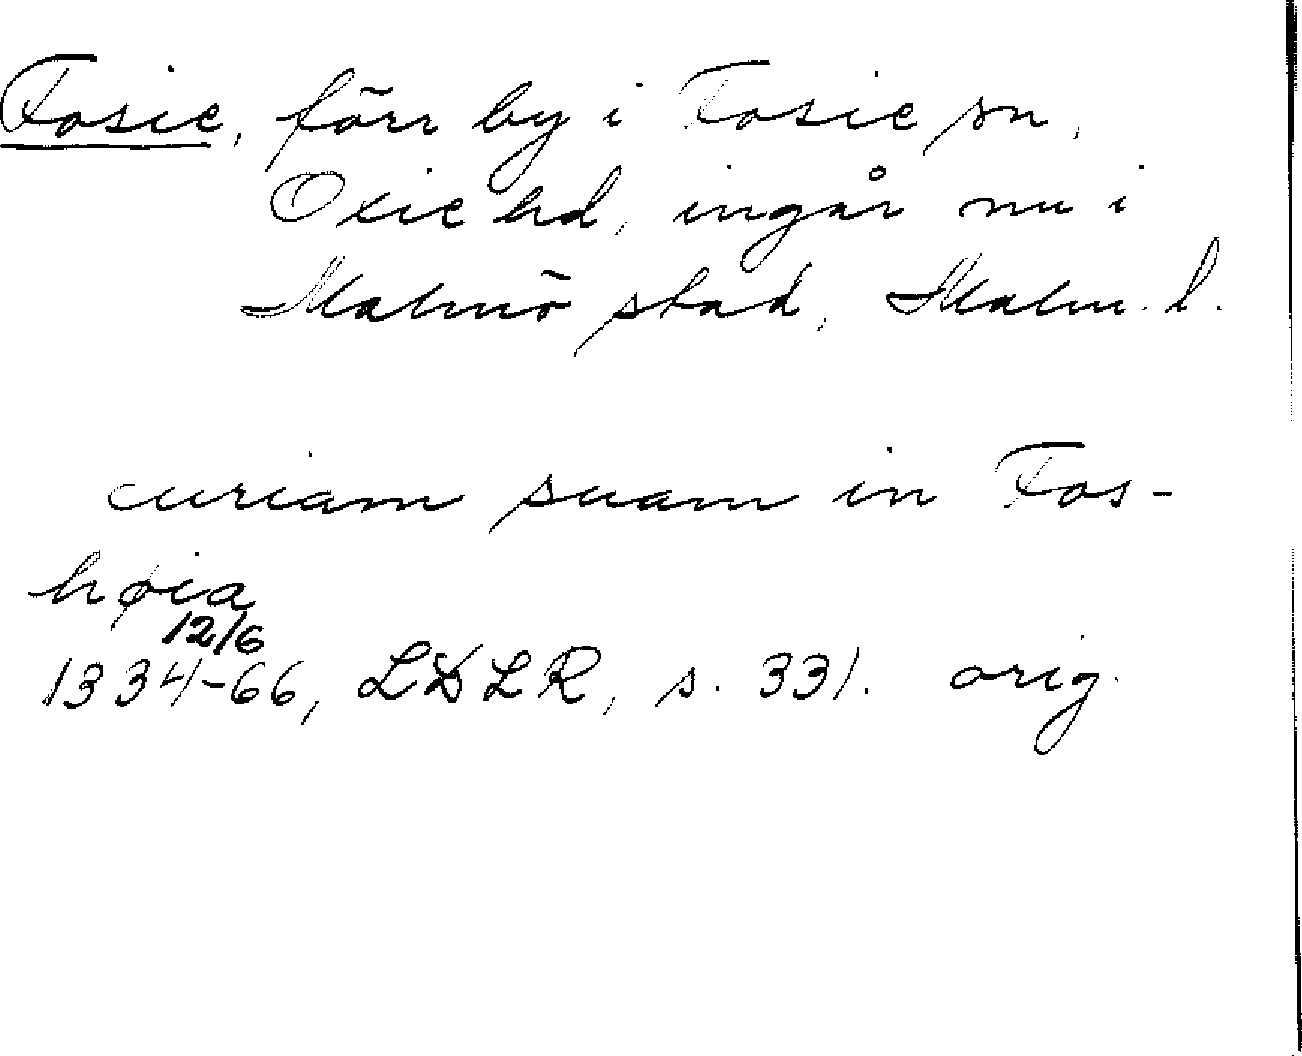 Fosie, förr by i Fosie sn,
Oxie hd, ingår nu i
Malmö stad, Malm. l.
curiam suam in Fos-
høia
12/6
1334-66, LDLR, s. 331. orig.